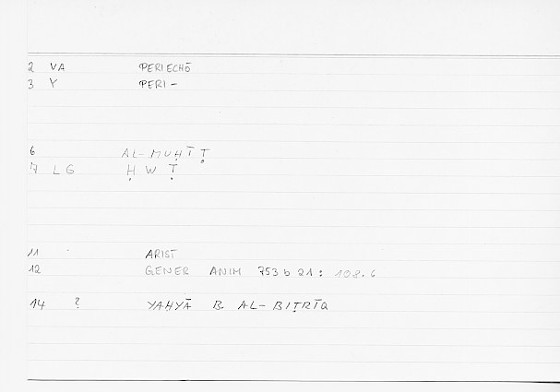 2 VA PERIECHŌ
3 Y PERI-
6 AL-MUḤĪṬ
7 LG Ḥ W Ṭ
11 ARIST
12 GENER ANIM 753 b 21 : 108.6
14 ? YAḤYĀ B. AL-BIṬRĪQ